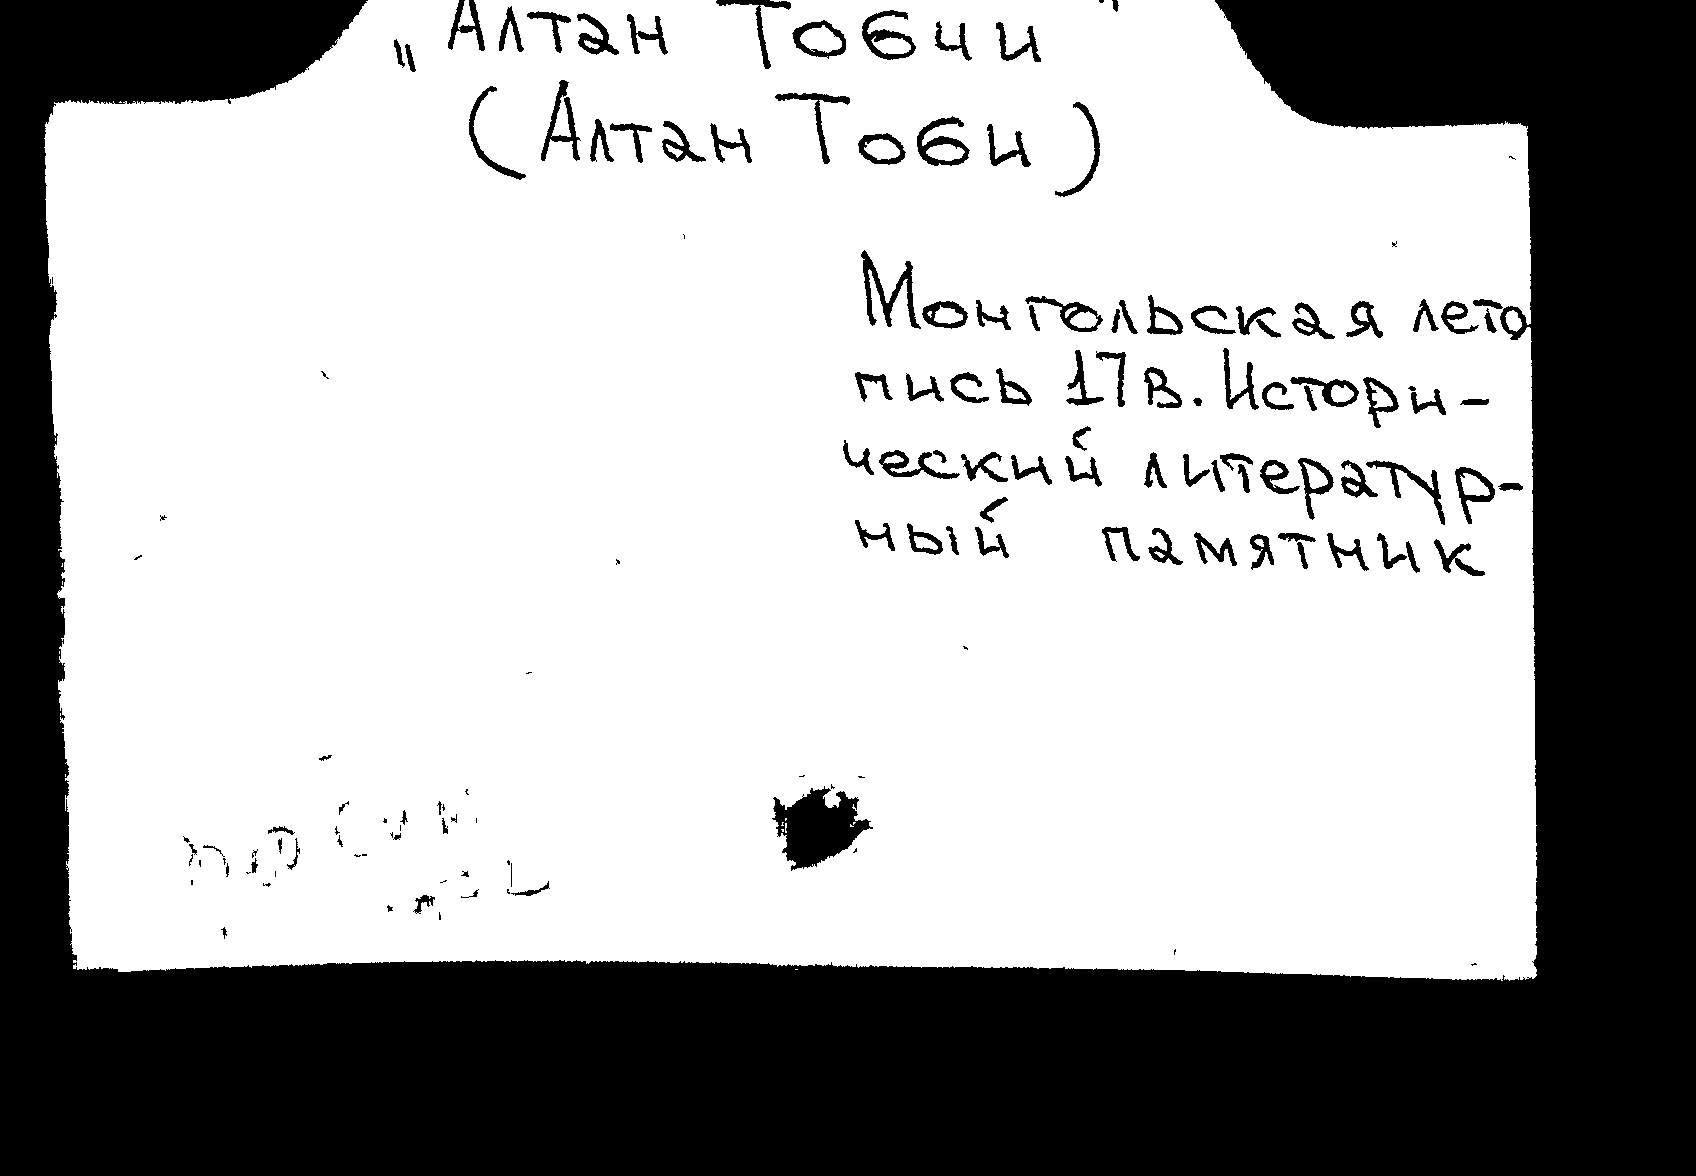 „Алтан Тобчи"
(Алтан Тоби)
Монгольская лето
пись 17 в. Истори-
ческий литератур-
ный памятник